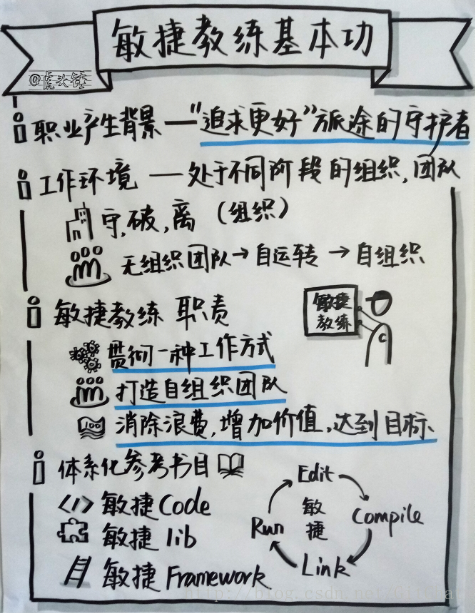 敏捷教练基本功
职业产生背景 — "追求更好"旅途的守护者
工作环境 — 处于不同阶段的组织,团队
守,破,离 (组织)
无组织团队→自运转→自组织
敏捷教练 职责
敏捷
教练
贯彻一种工作方式
打造自组织团队
100
消除浪费,增加价值,达到目标
体系化参考书目
</> 敏捷Code
敏捷 lib
敏捷 Framework
Edit
Compile
Link
Run
敏
捷